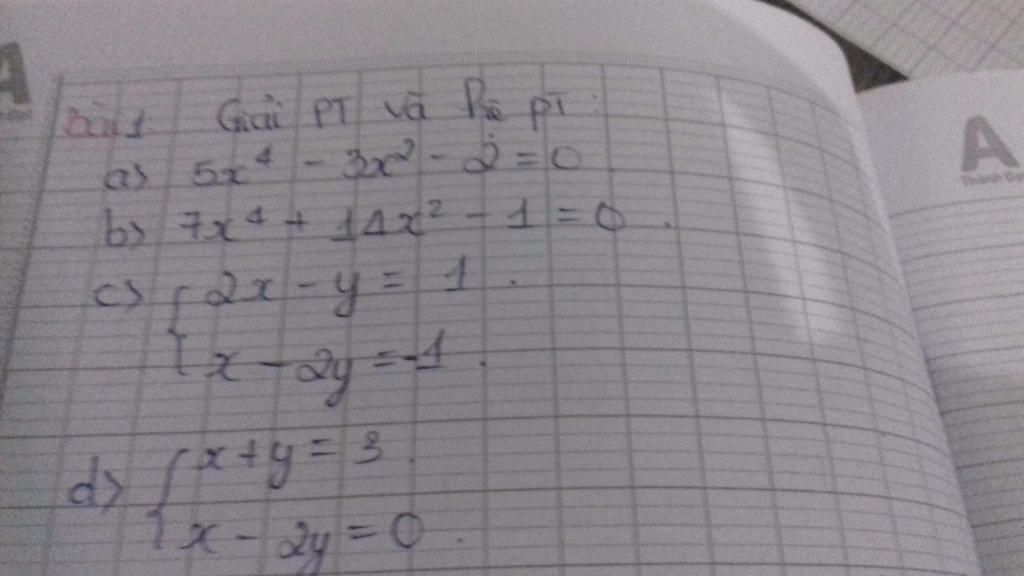 Bài 1 Giải PT và hệ pt:
a) 5x⁴ - 3x² - 2 = 0
b) 7x⁴ + 14x² - 1 = 0.
c) { 2x - y = 1.
x - 2y = -1.
d) { x + y = 3.
x - 2y = 0.
A
Thành Đạt